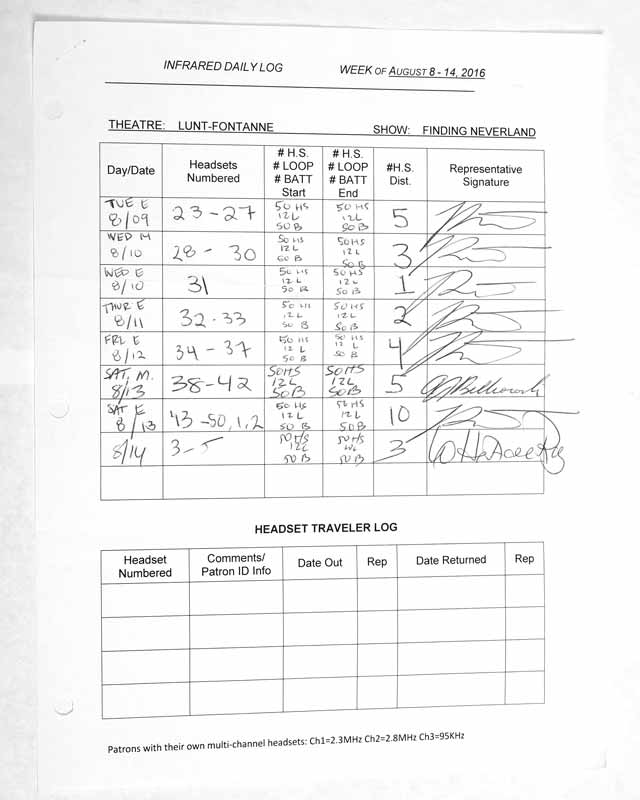 INFRARED DAILY LOG WEEK OF AUGUST 8 - 14, 2016
THEATRE: LUNT-FONTANNE SHOW: FINDING NEVERLAND
Day/Date
Headsets
Numbered
# H.S.
# LOOP
# BATT
Start
# H.S.
# LOOP
# BATT
End
#H.S.
Dist.
Representative
Signature
TUE E
8/09
23-27
50 HS
12L
50B
50 HS
12L
50B
5
WED M
8/10
28 - 30
50 HS
12L
50HS
12L
50B
3
WED E
8/10
31
50 HS
12L
50 B
50 HS
12L
50 B
1
THUR E
8/11
32-33
50 HS
12L
50 B
50HS
12L
50 B
2
FRI E
8/12
34 - 37
50 HS
12 L
50B
50 HS
12L
50 B
4
SAT. M.
8/13
38-42
50HS
12L
50B
50HS
12L
50B
5
SAT E
8/13
43-50, 1, 2
50 HS
12L
50 B
50 HS
12L
50B
10
8/14
3-5
50 HS
12L
50 B
50HS
50 B
3
HEADSET TRAVELER LOG
Headset
Numbered
Comments/
Patron ID Info
Date Out
Rep
Date Returned
Rep
Patrons with their own multi-channel headsets: Ch1=2.3MHz Ch2=2.8MHz Ch3=95KHz